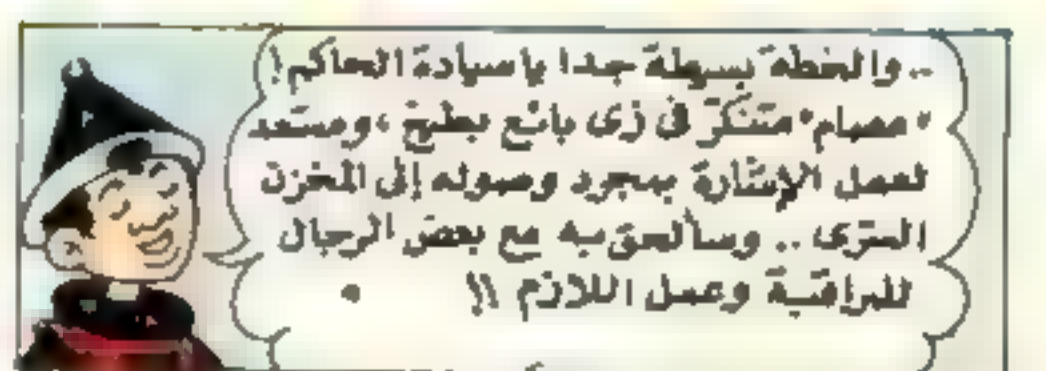 .. والخطة بسيطة جدا ياسيادة الحاكم!
"عصام" متنكر فى زى بائع بطيخ ، ومستعد
لعمل الإشارة بمجرد وصوله إلى المخزن
السرى .. وسألحق به مع بعض الرجال
للمراقبة وعمل اللازم !!